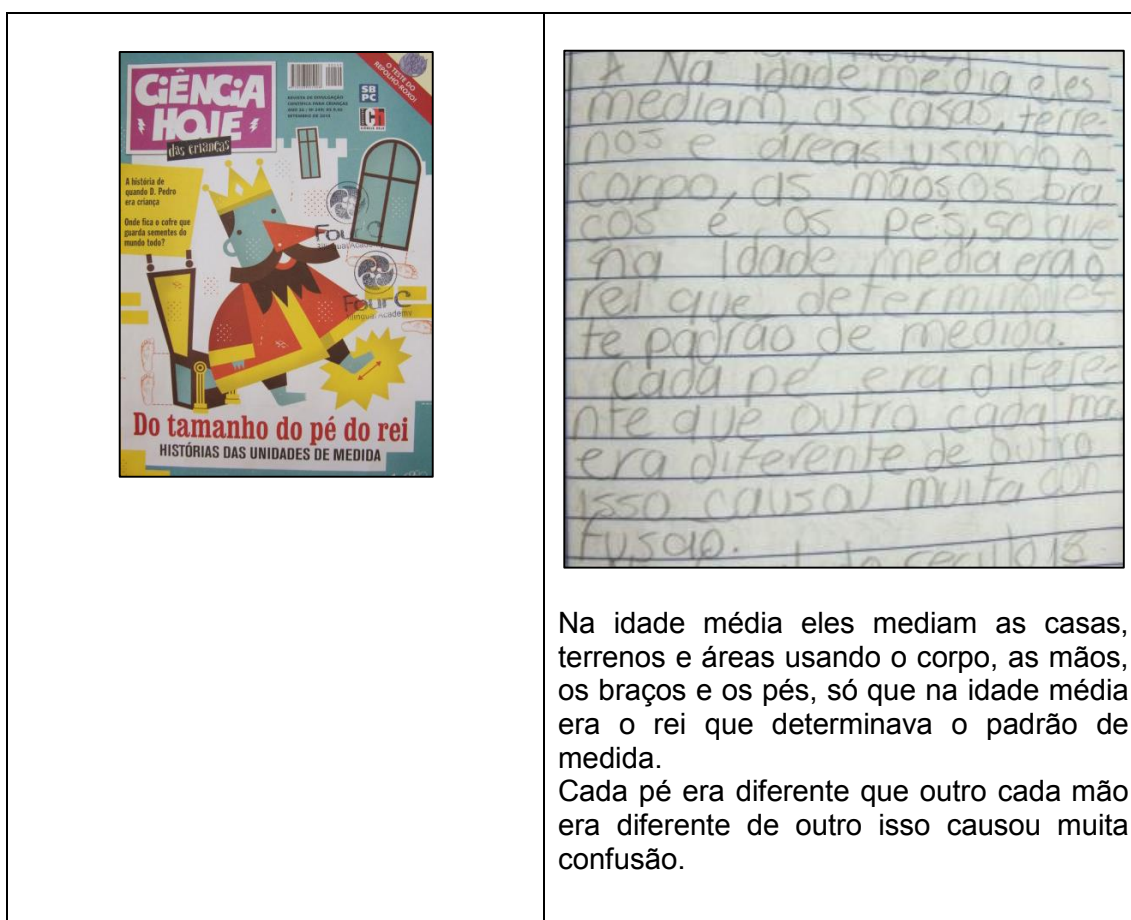 CIÊNCIA
HOJE
das crianças
REVISTA DE DIVULGAÇÃO
CIENTÍFICA PARA CRIANÇAS
SETEMBRO DE
SB
PC
O TESTE DO
REPOLHO-ROXO!
A história de
quando D. Pedro
era criança
Onde fica o cofre que
guarda sementes do
mundo todo?
FourC
Bilingual Academy
FourC
Bilingual Academy
Do tamanho do pé do rei
HISTÓRIAS DAS UNIDADES DE MEDIDA
Na idade media eles
mediam as casas, terre-
nos e áreas usando o
corpo, as mãos, os bra
cos e os pés, so que
na idade media era o
rei que
te padrão de medida.
Cada pé era difere-
nte que outro cada ma
era diferente de outro
isso causou muita con
fusão.
do secullo 18
Na idade média eles mediam as casas,
terrenos e áreas usando o corpo, as mãos,
os braços e os pés, só que na idade média
era o rei que determinava o padrão de
medida.
Cada pé era diferente que outro cada mão
era diferente de outro isso causou muita
confusão.